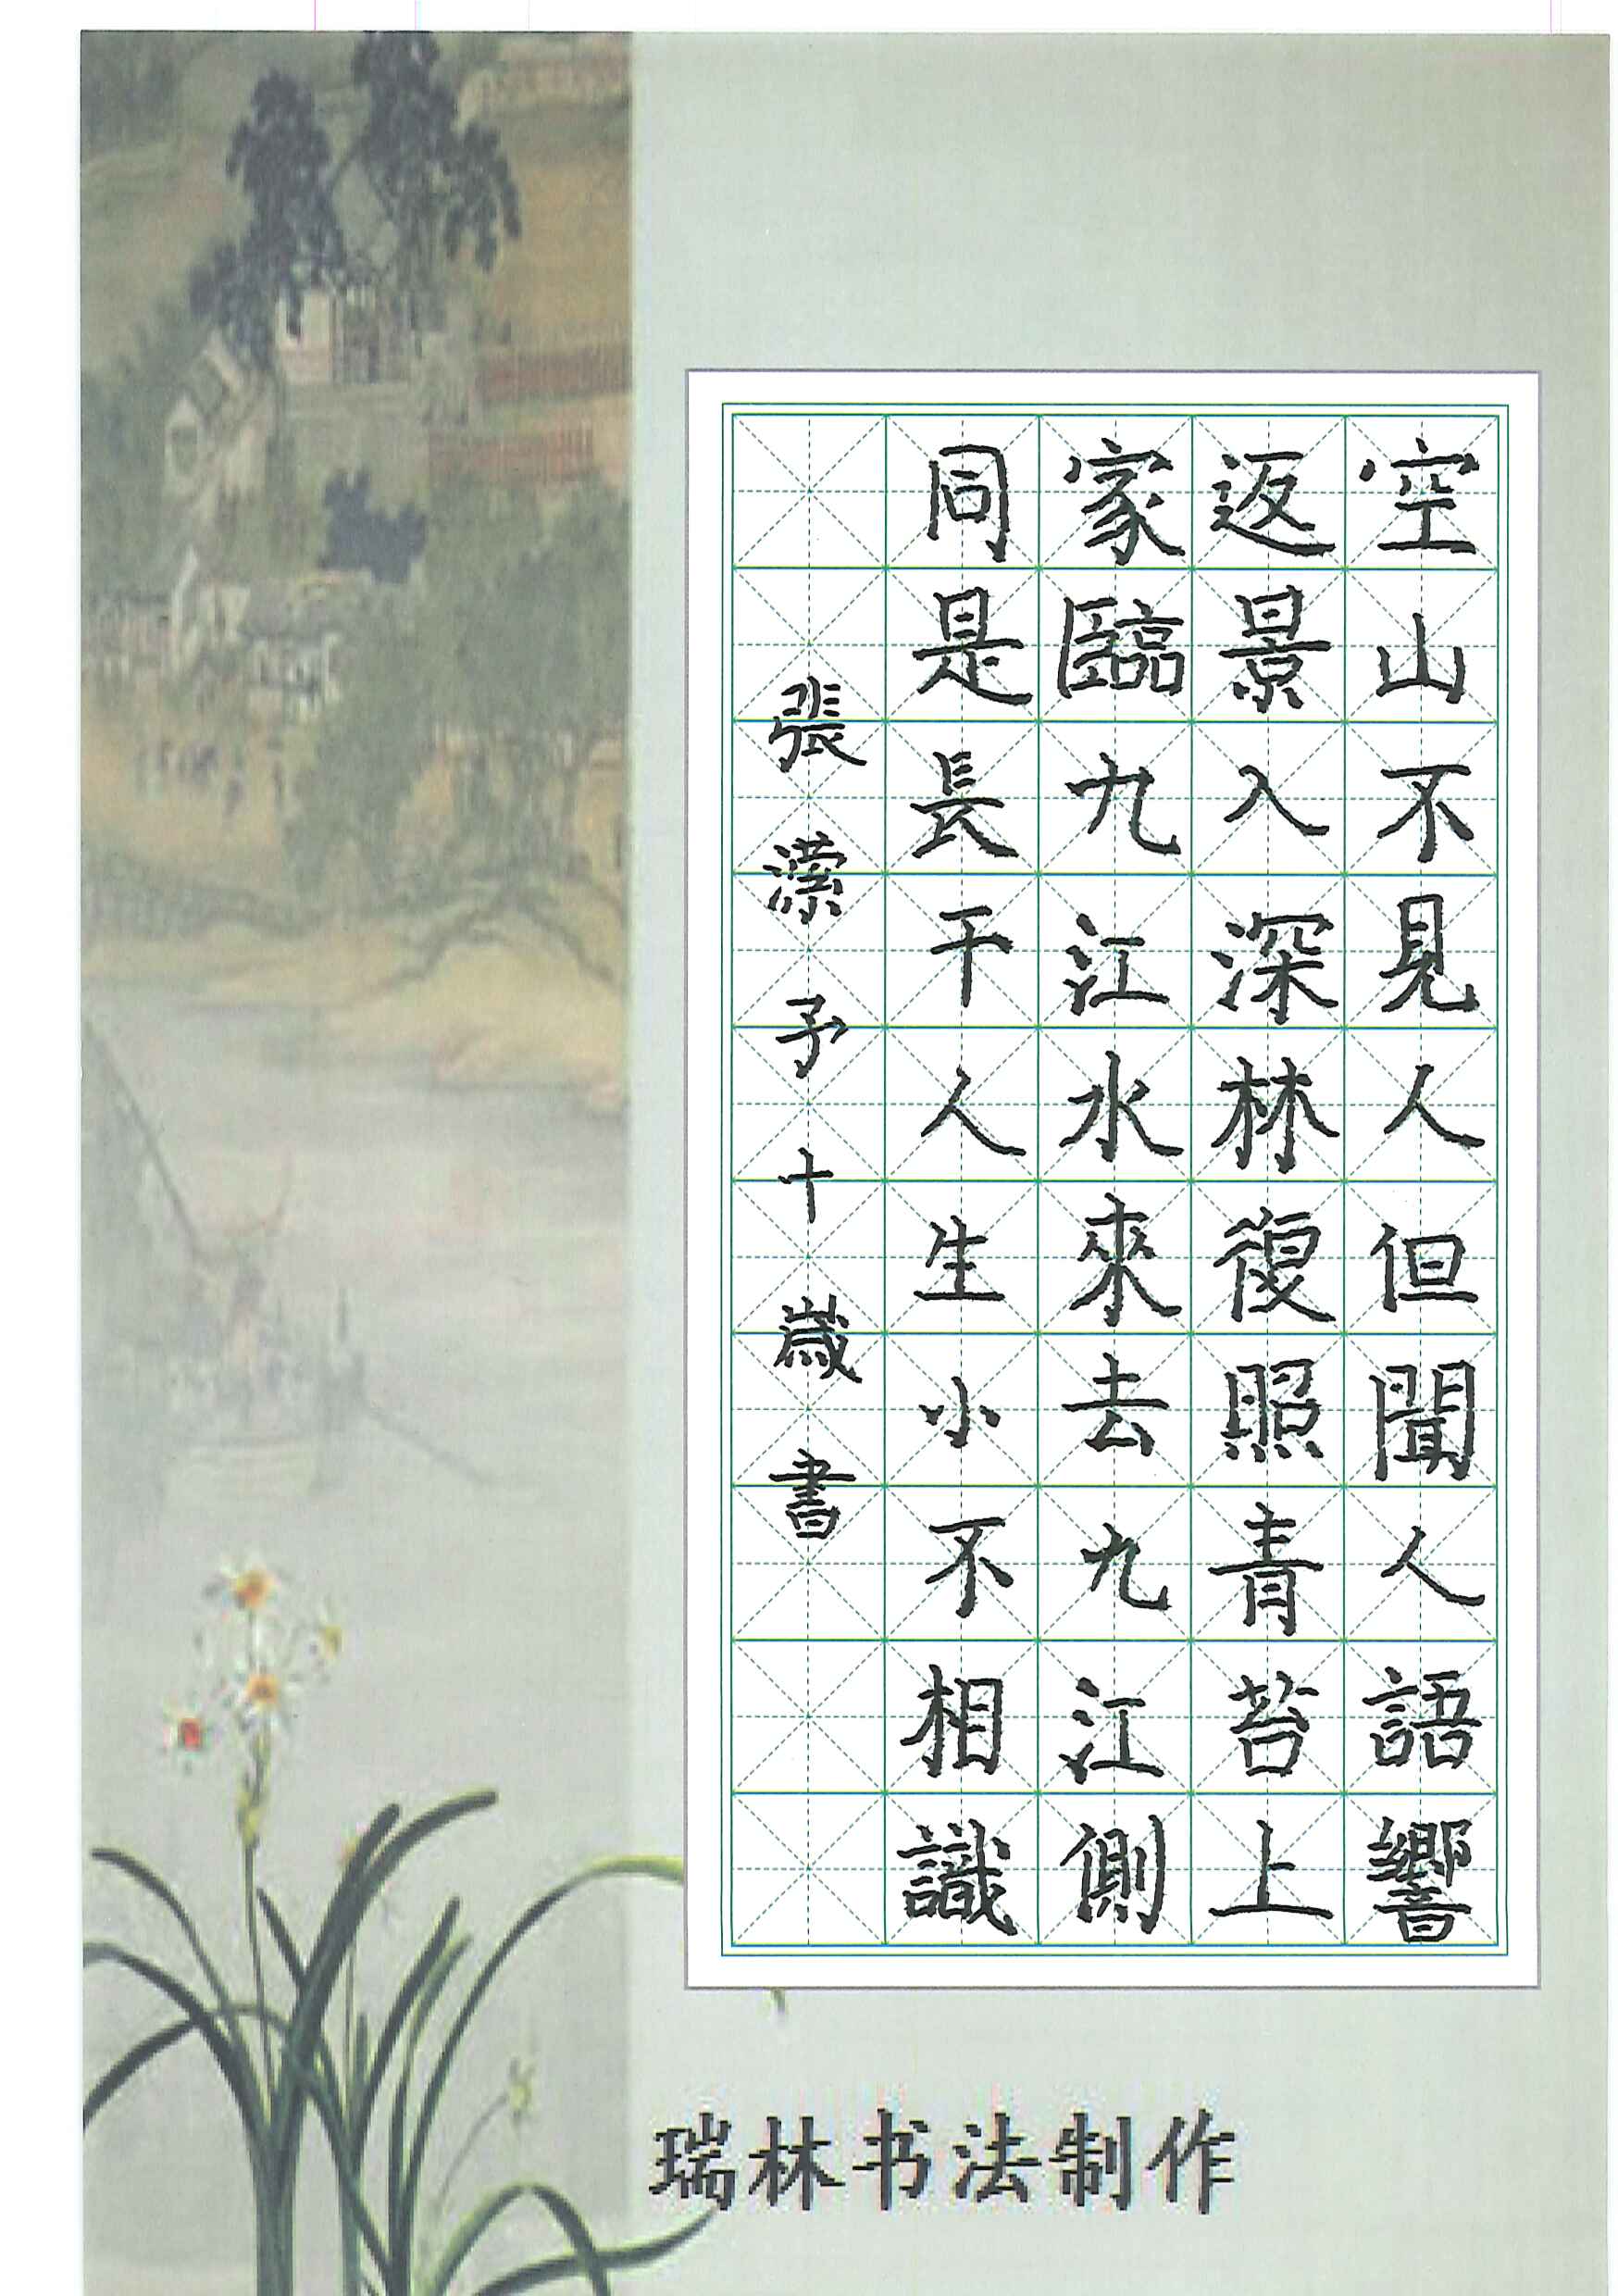 空山不見人但聞人語響
返景入深林復照青苔上
家臨九江水來去九江側
同是長干人生小不相識
張潆予十歲書
瑞林书法制作